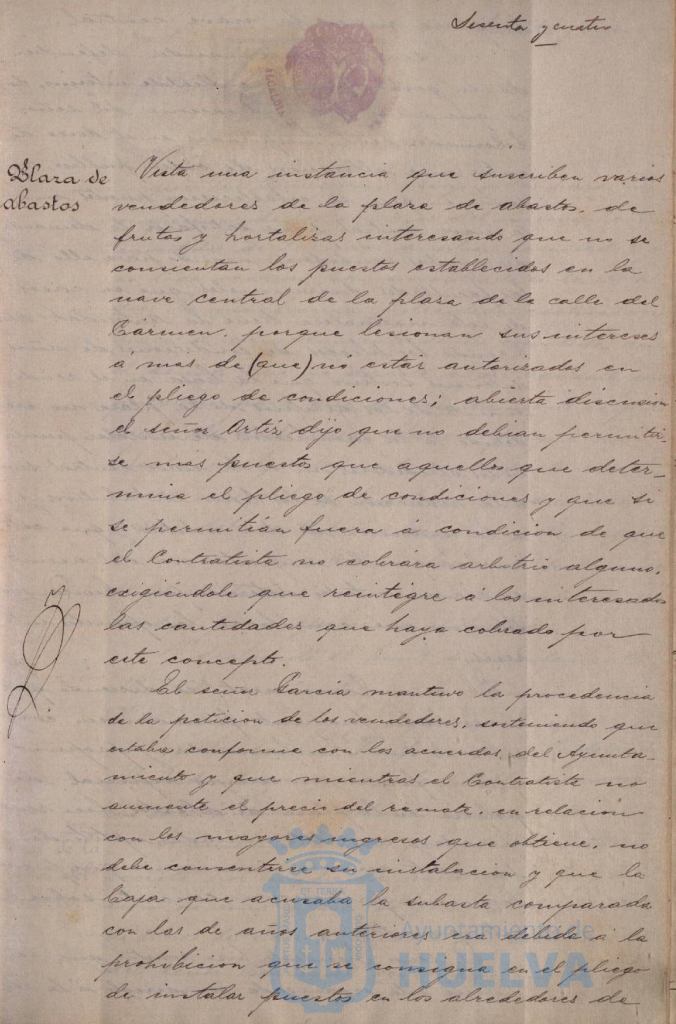 Sesenta y cuatro
Plaza de
abastos
Vista una instancia que suscriben varios
vendedores de la plaza de abastos, de
frutas y hortalizas interesando que no se
consientan los puestos establecidos en la
nave central de la plaza de la calle del
Cármen, porque lesionan sus intereses
á mas de (que) nó estar autorizados en
el pliego de condiciones; abierta discusion
el señor Ortiz dijo que no debian permitir-
se mas puestos que aquellos que deter-
mina el pliego de condiciones y que si
se permitián fuera á condicion de que
el Contratista no cobrára arbitrio alguno,
exigiéndole que reintegre á los interesados
las cantidades que haya cobrado por
este concepto.
El señor Garcia mantuvo la procedencia
de la peticion de los vendedores, sosteniendo que
estaba conforme con los acuerdos del Ayunta-
miento y que mientras el Contratista no
aumente el precio del remate, en relacion
con los mayores ingresos que obtiene, no
debe consentirse su instalacion y que la
baja que acusaba la subasta comparada
con las de años anteriores era debida á la
prohibicion que se consigna en el pliego
de instalar puestos en los alrededores de
Ayuntamiento de
HUELVA